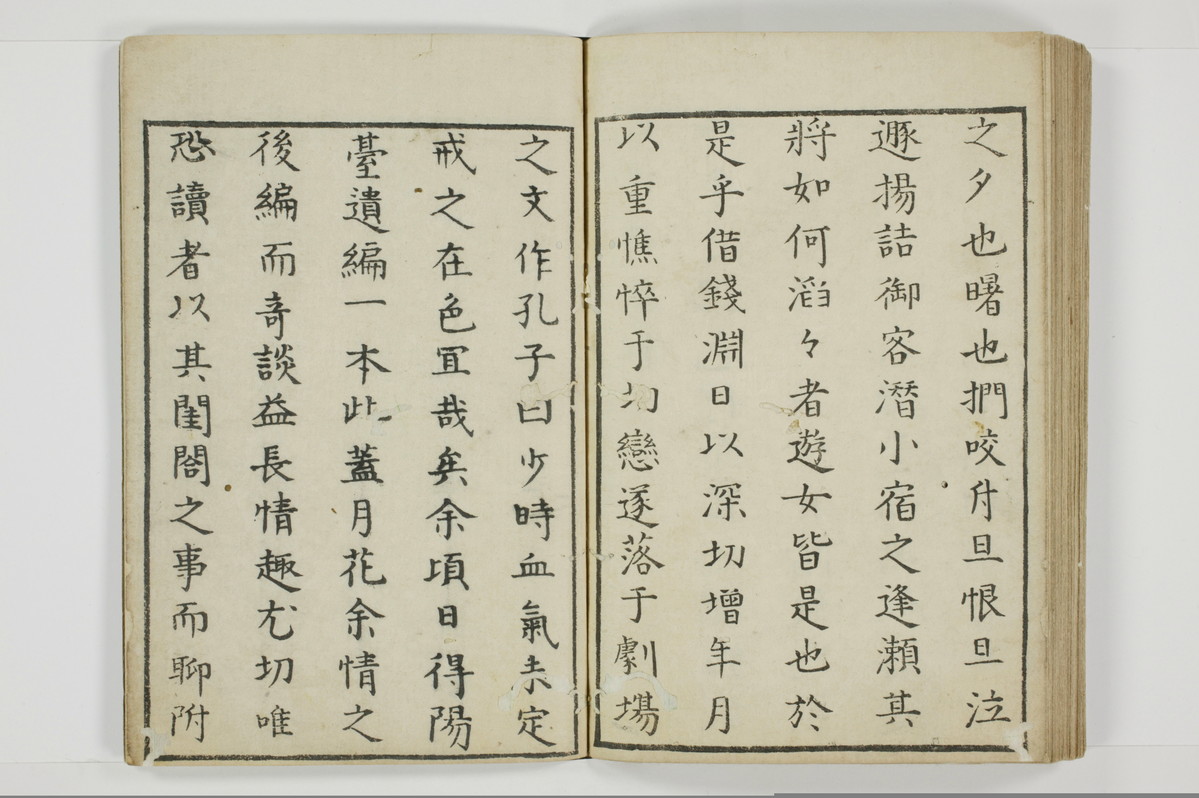 之夕也曙也捫咬舛且恨且泣
遯揚詰御客潛小宿之逢瀬其
將如何滔々者遊女皆是也於
是乎借錢淵日以深切增年月
以重憔悴于切戀遂落于劇場
之文作孔子曰少時血氣未定
戒之在色冝哉矣余頃日得陽
臺遺編一本此蓋月花余情之
後編而竒談益長情趣尤切唯
恐讀者以其閨閤之事而聊附